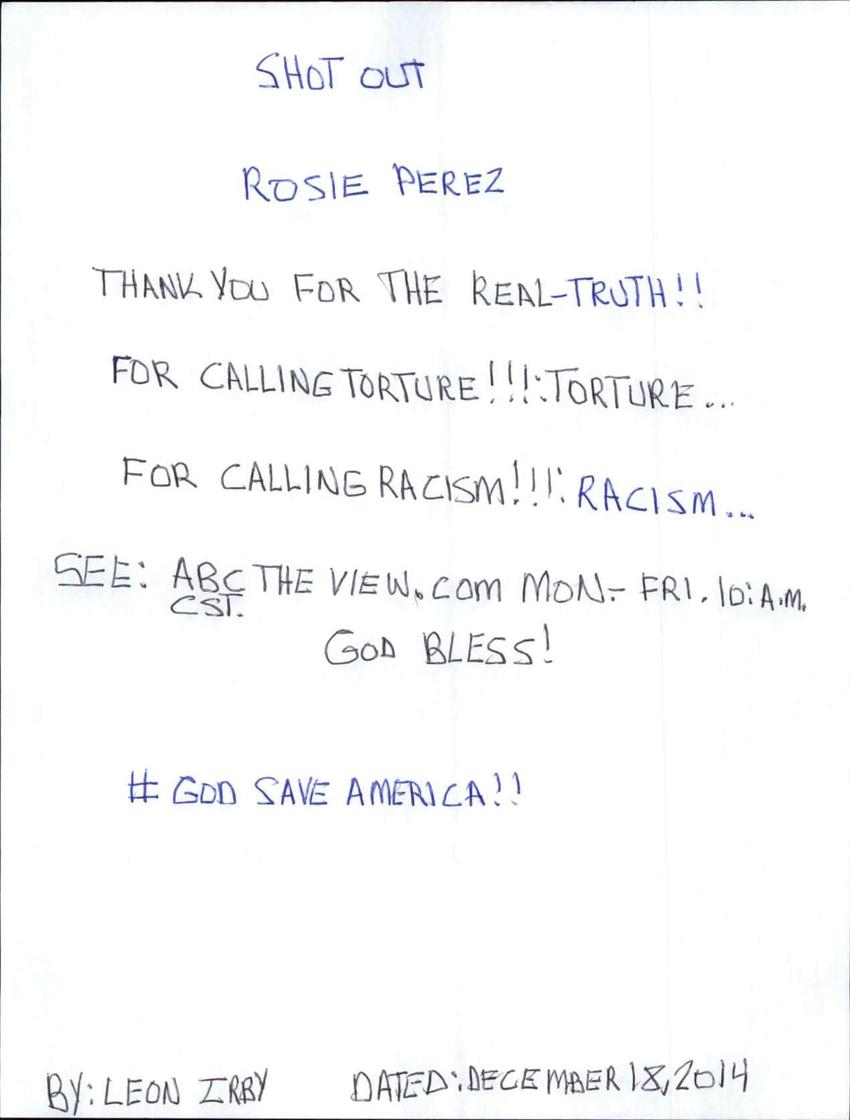 SHOT OUT
ROSIE PEREZ
THANK YOU FOR THE REAL-TRUTH!!
FOR CALLING TORTURE!!!:TORTURE...
FOR CALLING RACISM!!!: RACISM...
SEE: ABC THE VIEW.COM MON.- FRI. 10:A.M.
CST.
GOD BLESS!
# GOD SAVE AMERICA!!
BY: LEON IRBY DATED:DECEMBER 18,2014